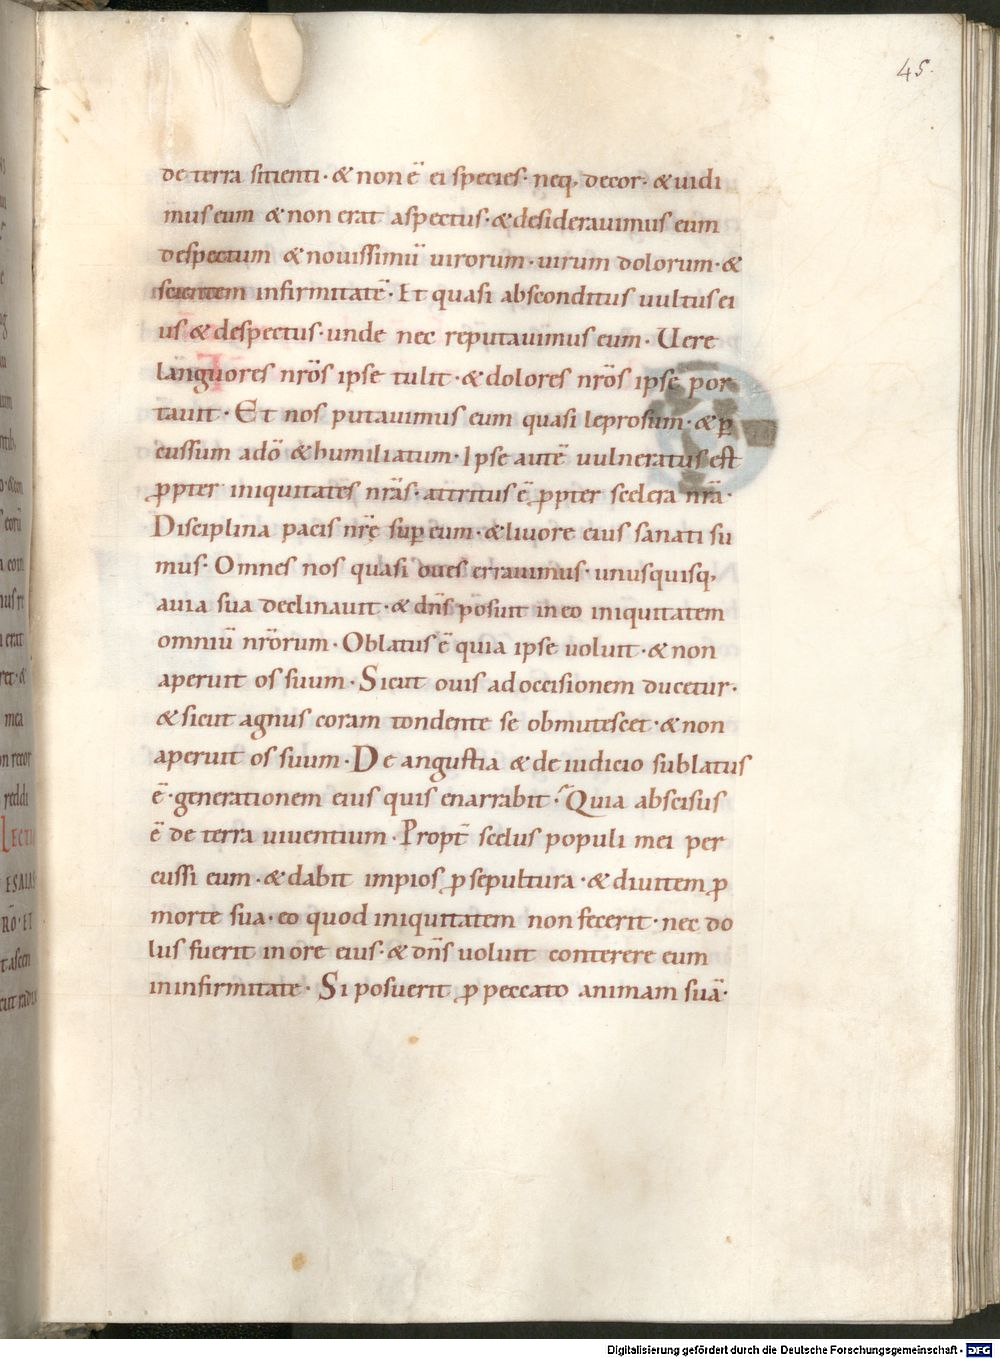 45.
de terra sitienti · & non ē ei species · neq; decor · & uidi
mus eum & non erat aspectus · & desiderauimus eum
despectum & nouissimū uirorum · uirum dolorum · &
scientem infirmitatē · Et quasi absconditus uultus ei
us & despectus · unde nec reputauimus eum · Uere
languores nr̄os ipse tulit · & dolores nr̄os ipse por
tauit · Et nos putauimus eum quasi leprosum · & ꝑ
cussum adō & humiliatum · Ipse autē uulneratus est
ꝓpter iniquitates nr̄as · attritus ē ꝓpter scelera nr̄a ·
Disciplina pacis nr̄ę suꝑ eum · & liuore eius sanati su
mus · Omnes nos quasi oues errauimus · unusquisq;
auia sua declinauit · & dn̄s posuit in eo iniquitatem
omniū nr̄orum · Oblatus ē quia ipse uoluit · & non
aperuit os suum · Sicut ouis ad occisionem ducetur ·
& sicut agnus coram tondente se obmutescet · & non
aperuit os suum · De angustia & de iudicio sublatus
ē · generationem eius quis enarrabit · Quia abscisus
ē de terra uiuentium · Propt̄ scelus populi mei per
cussi eum · & dabit impios ꝓ sepultura · & diuitem ꝓ
morte sua · eo quod iniquitatem non fecerit · nec do
lus fuerit in ore eius · & dn̄s uoluit conterere eum
in infirmitate · Si posuerit ꝓ peccato animam suā ·
Digitalisierung gefördert durch die Deutsche Forschungsgemeinschaft - DFG